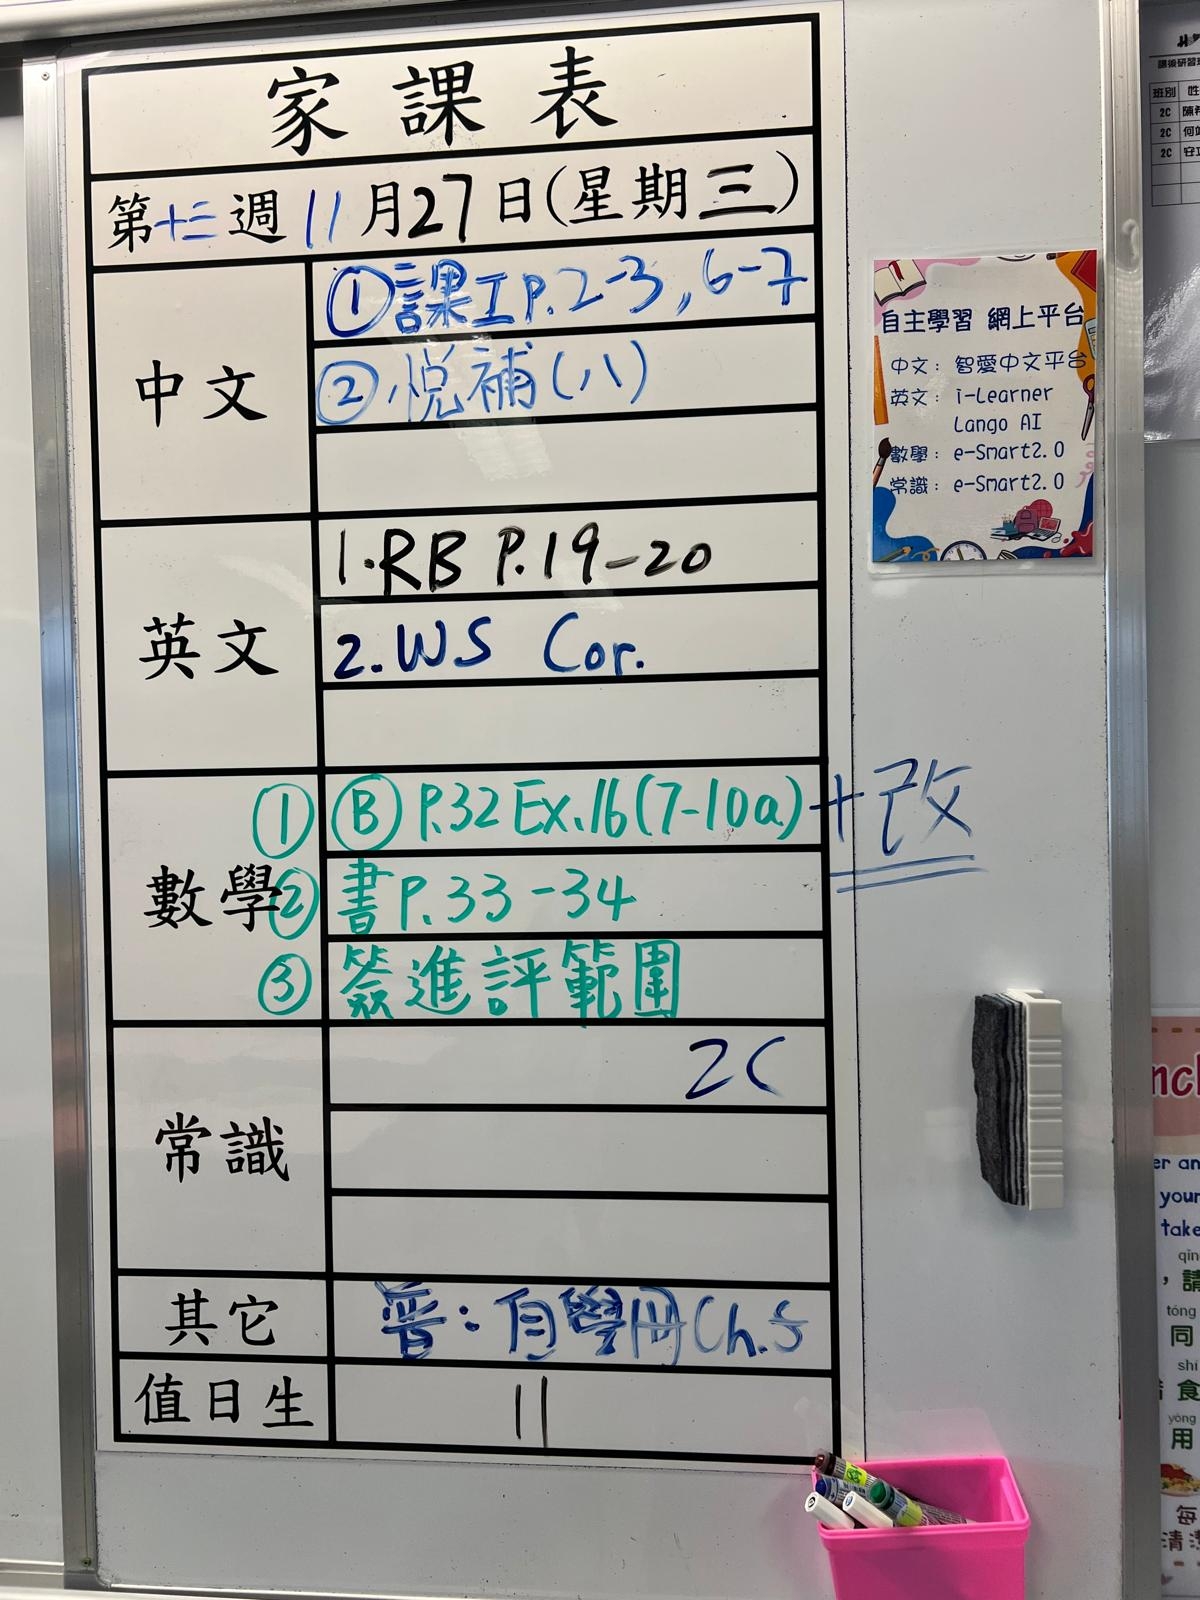 家課表
第十三週 11月27日(星期三)
中文
①課工P.2-3,6-7
②悅補(八)
英文
1.RB P.19-20
2.WS Cor.
數學
① Ⓑ P.32 Ex.16(7-10a)+改
② 書P.33-34
③ 簽進評範圍
常識
2C
其它
普:自學冊Ch.5
值日生
11
自主學習 網上平台
中文:智愛中文平台
英文:i-Learner
Lango AI
數學:e-Smart2.0
常識:e-Smart2.0
課後研習班
班別 姓
2C 陳
2C 何
2C 安
er an
your
take
qǐn
,請
tóng
同
shí
食
yòng
用
每
清潔